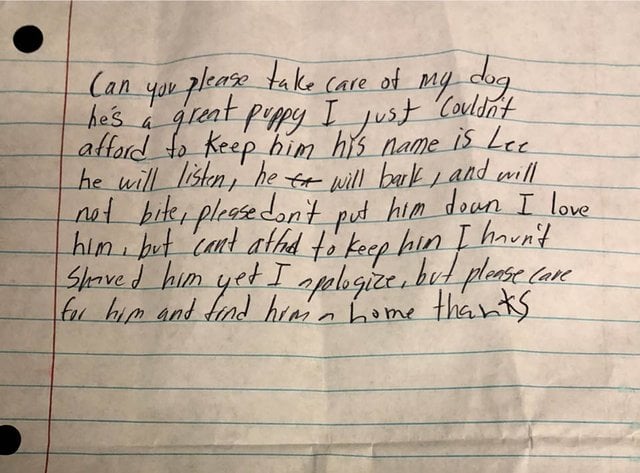 Can you please take care of my dog
he's a great puppy I just couldn't
afford to keep him his name is Lee
he will listen, he will bark, and will
not bite, please don't put him down I love
him, but cant affrd to keep him I havn't
Shaved him yet I apologize, but please care
for him and find him a home thanks